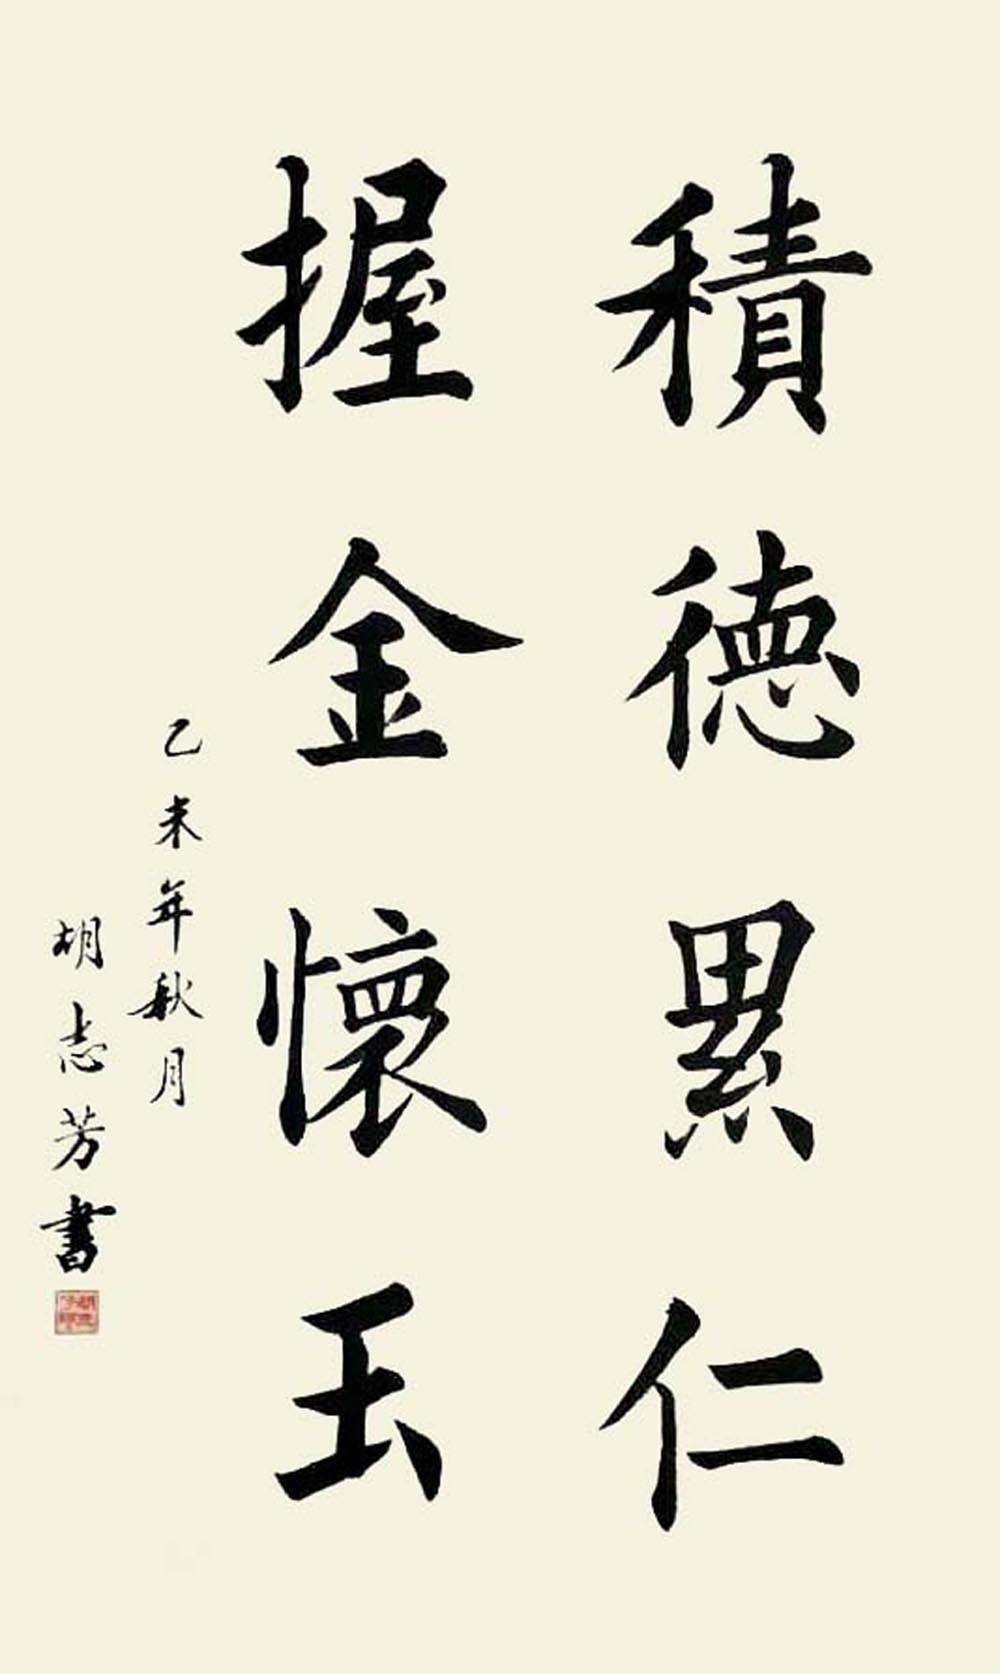 積德累仁
握金懷玉
乙未年秋月
胡志芳書